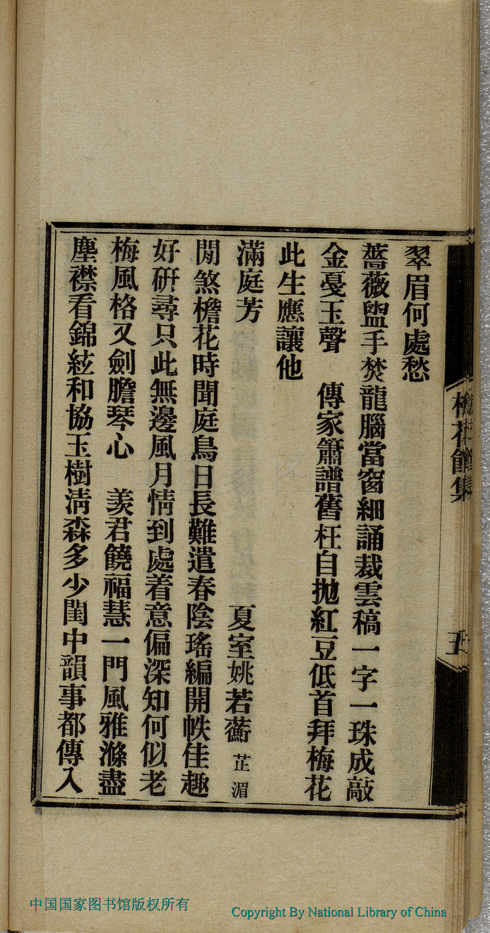 翠眉何處愁
薔薇盥手焚龍腦當窗細誦裁雲稿一字一珠成敲
金戞玉聲　傳家簫譜舊枉自拋紅豆低首拜梅花
此生應讓他
滿庭芳　夏室姚若蘅芷湄
閒煞檐花時聞庭鳥日長難遣春陰瑤編開帙佳趣
好硏尋只此無邊風月情到處着意偏深知何似老
梅風格又劍膽琴心　羨君饒福慧一門風雅滌盡
塵襟看錦絃和協玉樹淸森多少閨中韻事都傳入
花館集
五
中国国家图书馆版权所有
Copyright By National Library of China